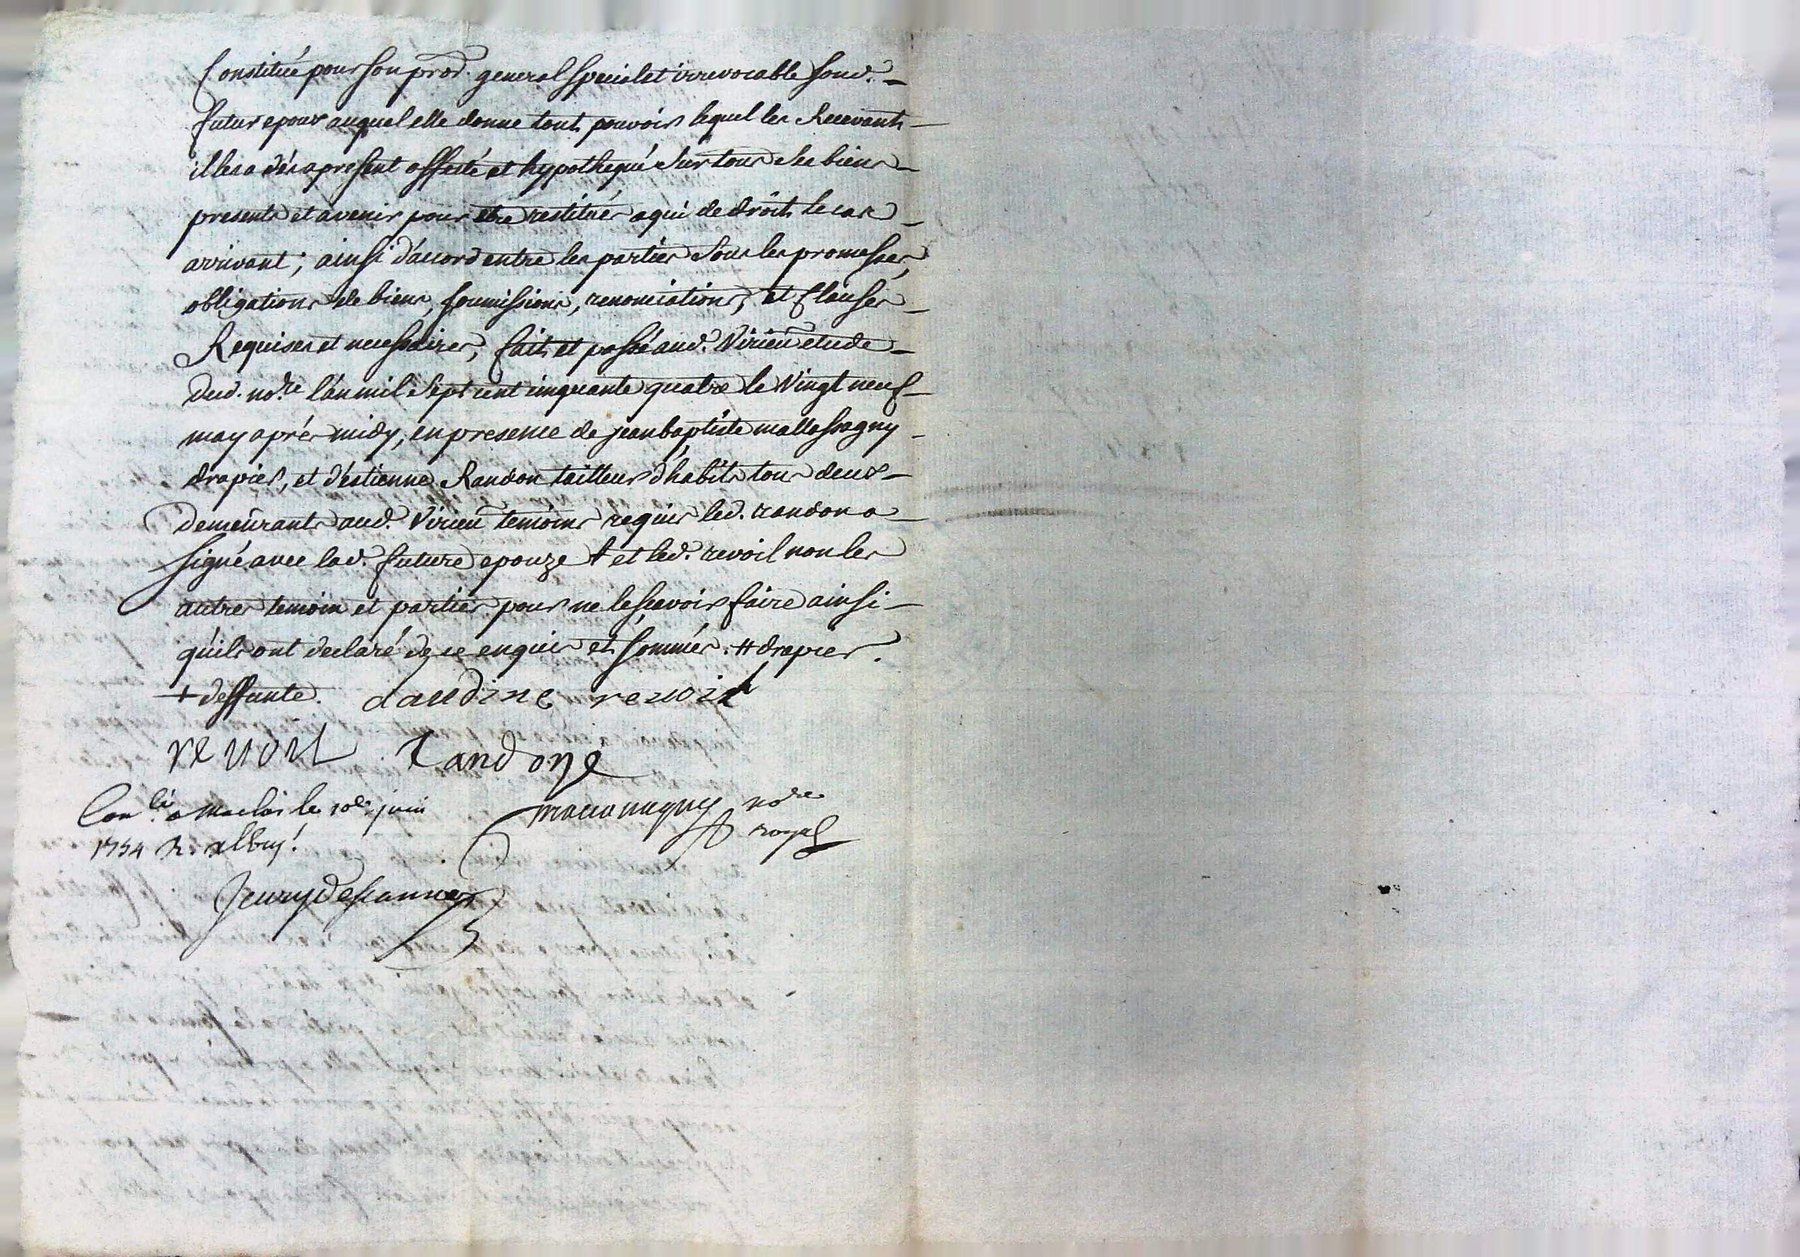 Constitué pour son prod. general special et irrevocable sond.
futur epoux auquel elle donne tout pouvoir lequel les Recevant
il les a dés apresent affecté et hypothequé sur tous ses biens
presents et avenir pour etre restitués a qui de droit le cas
arrivant; ainsi d'accord entre les parties sous les promesses
obligations de biens, soumissions, renonciations, et Clauses
Requises et necessaires, fait et passé aud. Virieu etude
dud. nore l'an mil sept cent cinquante quatre le Vingt neuf
may aprés midy, en presence de jean baptiste mallassagny
drapier, et d'estienne Randon tailleur d'habits tous deux
demeurants aud. Virieu temoins requis led. randon a
signé avec lad. future epouze + et led. revoil non les
autres temoin et parties pour ne le scavoir faire ainsi
qu'ils ont declaré de ce enquis et sommés. # drapier.
+ deffunte. claudine revoil
revoil Randon
Conlé a Maclas le 10e. juin
nore
royal
1754